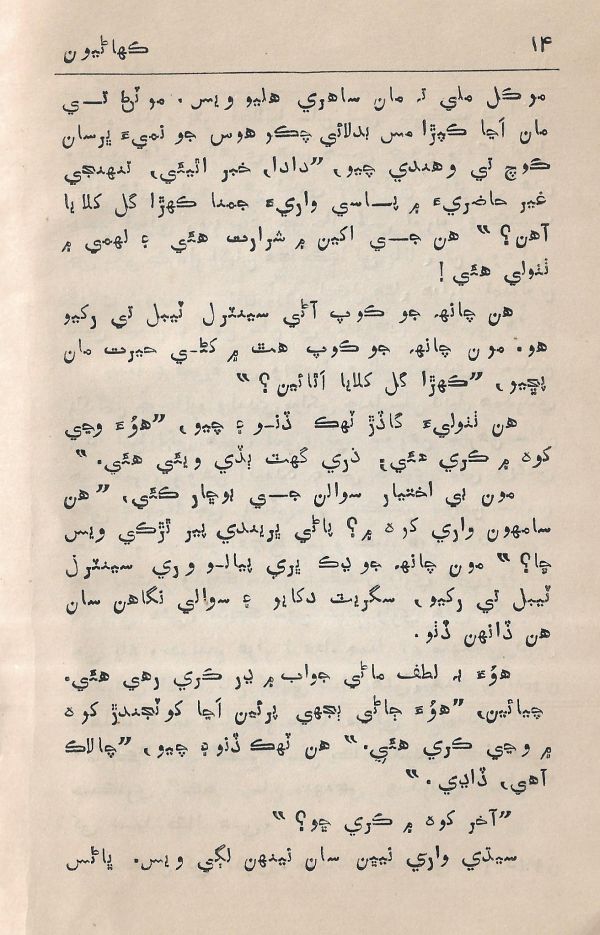 ۱۴ ڪهاڻيون
موڪل ملي تہ مان ساهري هليو ويس. موٽڻ تي
مان اڃا ڪپڙا مس بدلائي چڪر هوس جو نميءَ ڀرسان
ڪوچ تي وهندي چيو، ”دادا، خبر اٿيئي، تنهنجي
غير حاضريءَ ۾ پاسي واريءَ جمنا ڪهڙا گل کلايا
آهن؟“ هن جي اکين ۾ شرارت هئي ۽ لهجي ۾
ٺٺولي هئي!
هن چانھہ جو ڪوپ آڻي سينٽرل ٽيبل تي رکيو
هو. مون چانھہ جو ڪوپ هٿ ۾ کڻي حيرت مان
پڇيو، ”ڪهڙا گل کلايا اٿائين؟“
هن ٺٺوليءَ گاڏڙ ٽهڪ ڏنو ۽ چيو، ”هوءَ وڃي
کوه ۾ ڪري هئي؛ ذري گهٽ ٻڏي ويئي هئي.“
مون بي اختيار سوالن جي بوڇار ڪئي، ”هن
سامهون واري کوه ۾؟ پاڻي ڀريندي پير ترڪي ويس
ڇا؟“ مون چانھہ جو ڍڪ ڀري پيالو وري سينٽرل
ٽيبل تي رکيو، سگريٽ دکايو ۽ سوالي نگاهن سان
هن ڏانهن ڏٺو.
هوءَ بہ لطف ماڻي جواب ۾ دير ڪري رهي هئي.
چيائين، ”هوءَ ڄاڻي ٻجهي پرئين اڃا کوٽجندڙ کوه
۾ وڃي ڪري هئي.“ هن ٽهڪ ڏنو ۽ چيو، ”چالاڪ
آهي، ڏاڍي.“
”آخر کوه ۾ ڪري ڇو؟“
سيڌي واري نيبن سان نينهن لڳي ويس. پاڻس